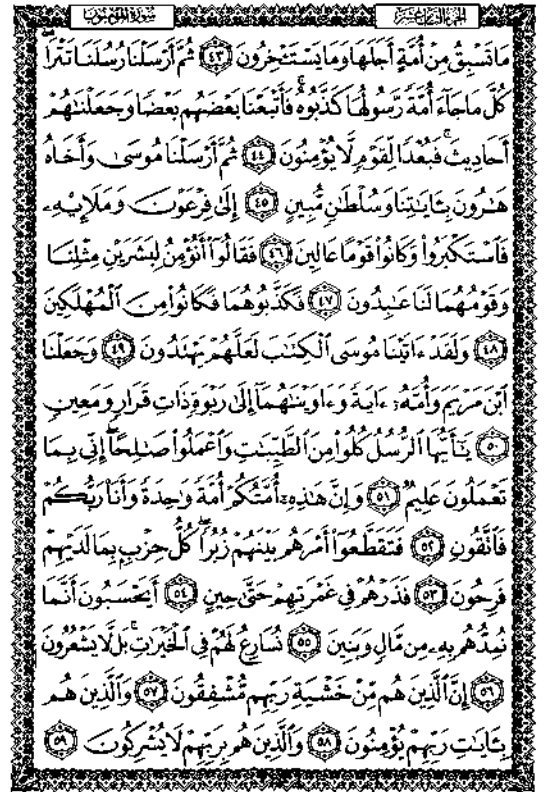 سورة المؤمنون الجزء الثامن عشر
مَا تَسْبِقُ مِنْ أُمَّةٍ أَجَلَهَا وَمَا يَسْتَـْٔخِرُونَ ٤٣ ثُمَّ أَرْسَلْنَا رُسُلَنَا تَتْرَا
كُلَّ مَا جَآءَ أُمَّةً رَّسُولُهَا كَذَّبُوهُ فَأَتْبَعْنَا بَعْضَهُم بَعْضًا وَجَعَلْنَٰهُمْ
أَحَادِيثَ فَبُعْدًا لِّقَوْمٍ لَّا يُؤْمِنُونَ ٤٤ ثُمَّ أَرْسَلْنَا مُوسَىٰ وَأَخَاهُ
هَٰرُونَ بِـَٔايَٰتِنَا وَسُلْطَٰنٍ مُّبِينٍ ٤٥ إِلَىٰ فِرْعَوْنَ وَمَلَإِيْهِۦ
فَٱسْتَكْبَرُوا۟ وَكَانُوا۟ قَوْمًا عَالِينَ ٤٦ فَقَالُوٓا۟ أَنُؤْمِنُ لِبَشَرَيْنِ مِثْلِنَا
وَقَوْمُهُمَا لَنَا عَٰبِدُونَ ٤٧ فَكَذَّبُوهُمَا فَكَانُوا۟ مِنَ ٱلْمُهْلَكِينَ
٤٨ وَلَقَدْ ءَاتَيْنَا مُوسَى ٱلْكِتَٰبَ لَعَلَّهُمْ يَهْتَدُونَ ٤٩ وَجَعَلْنَا
ٱبْنَ مَرْيَمَ وَأُمَّهُۥٓ ءَايَةً وَءَاوَيْنَٰهُمَآ إِلَىٰ رَبْوَةٍ ذَاتِ قَرَارٍ وَمَعِينٍ
٥٠ يَٰٓأَيُّهَا ٱلرُّسُلُ كُلُوا۟ مِنَ ٱلطَّيِّبَٰتِ وَٱعْمَلُوا۟ صَٰلِحًا إِنِّى بِمَا
تَعْمَلُونَ عَلِيمٌ ٥١ وَإِنَّ هَٰذِهِۦٓ أُمَّتُكُمْ أُمَّةً وَٰحِدَةً وَأَنَا۠ رَبُّكُمْ
فَٱتَّقُونِ ٥٢ فَتَقَطَّعُوٓا۟ أَمْرَهُم بَيْنَهُمْ زُبُرًا كُلُّ حِزْبٍۭ بِمَا لَدَيْهِمْ
فَرِحُونَ ٥٣ فَذَرْهُمْ فِى غَمْرَتِهِمْ حَتَّىٰ حِينٍ ٥٤ أَيَحْسَبُونَ أَنَّمَا
نُمِدُّهُم بِهِۦ مِن مَّالٍ وَبَنِينَ ٥٥ نُسَارِعُ لَهُمْ فِى ٱلْخَيْرَٰتِ بَل لَّا يَشْعُرُونَ
٥٦ إِنَّ ٱلَّذِينَ هُم مِّنْ خَشْيَةِ رَبِّهِم مُّشْفِقُونَ ٥٧ وَٱلَّذِينَ هُم
بِـَٔايَٰتِ رَبِّهِمْ يُؤْمِنُونَ ٥٨ وَٱلَّذِينَ هُم بِرَبِّهِمْ لَا يُشْرِكُونَ ٥٩